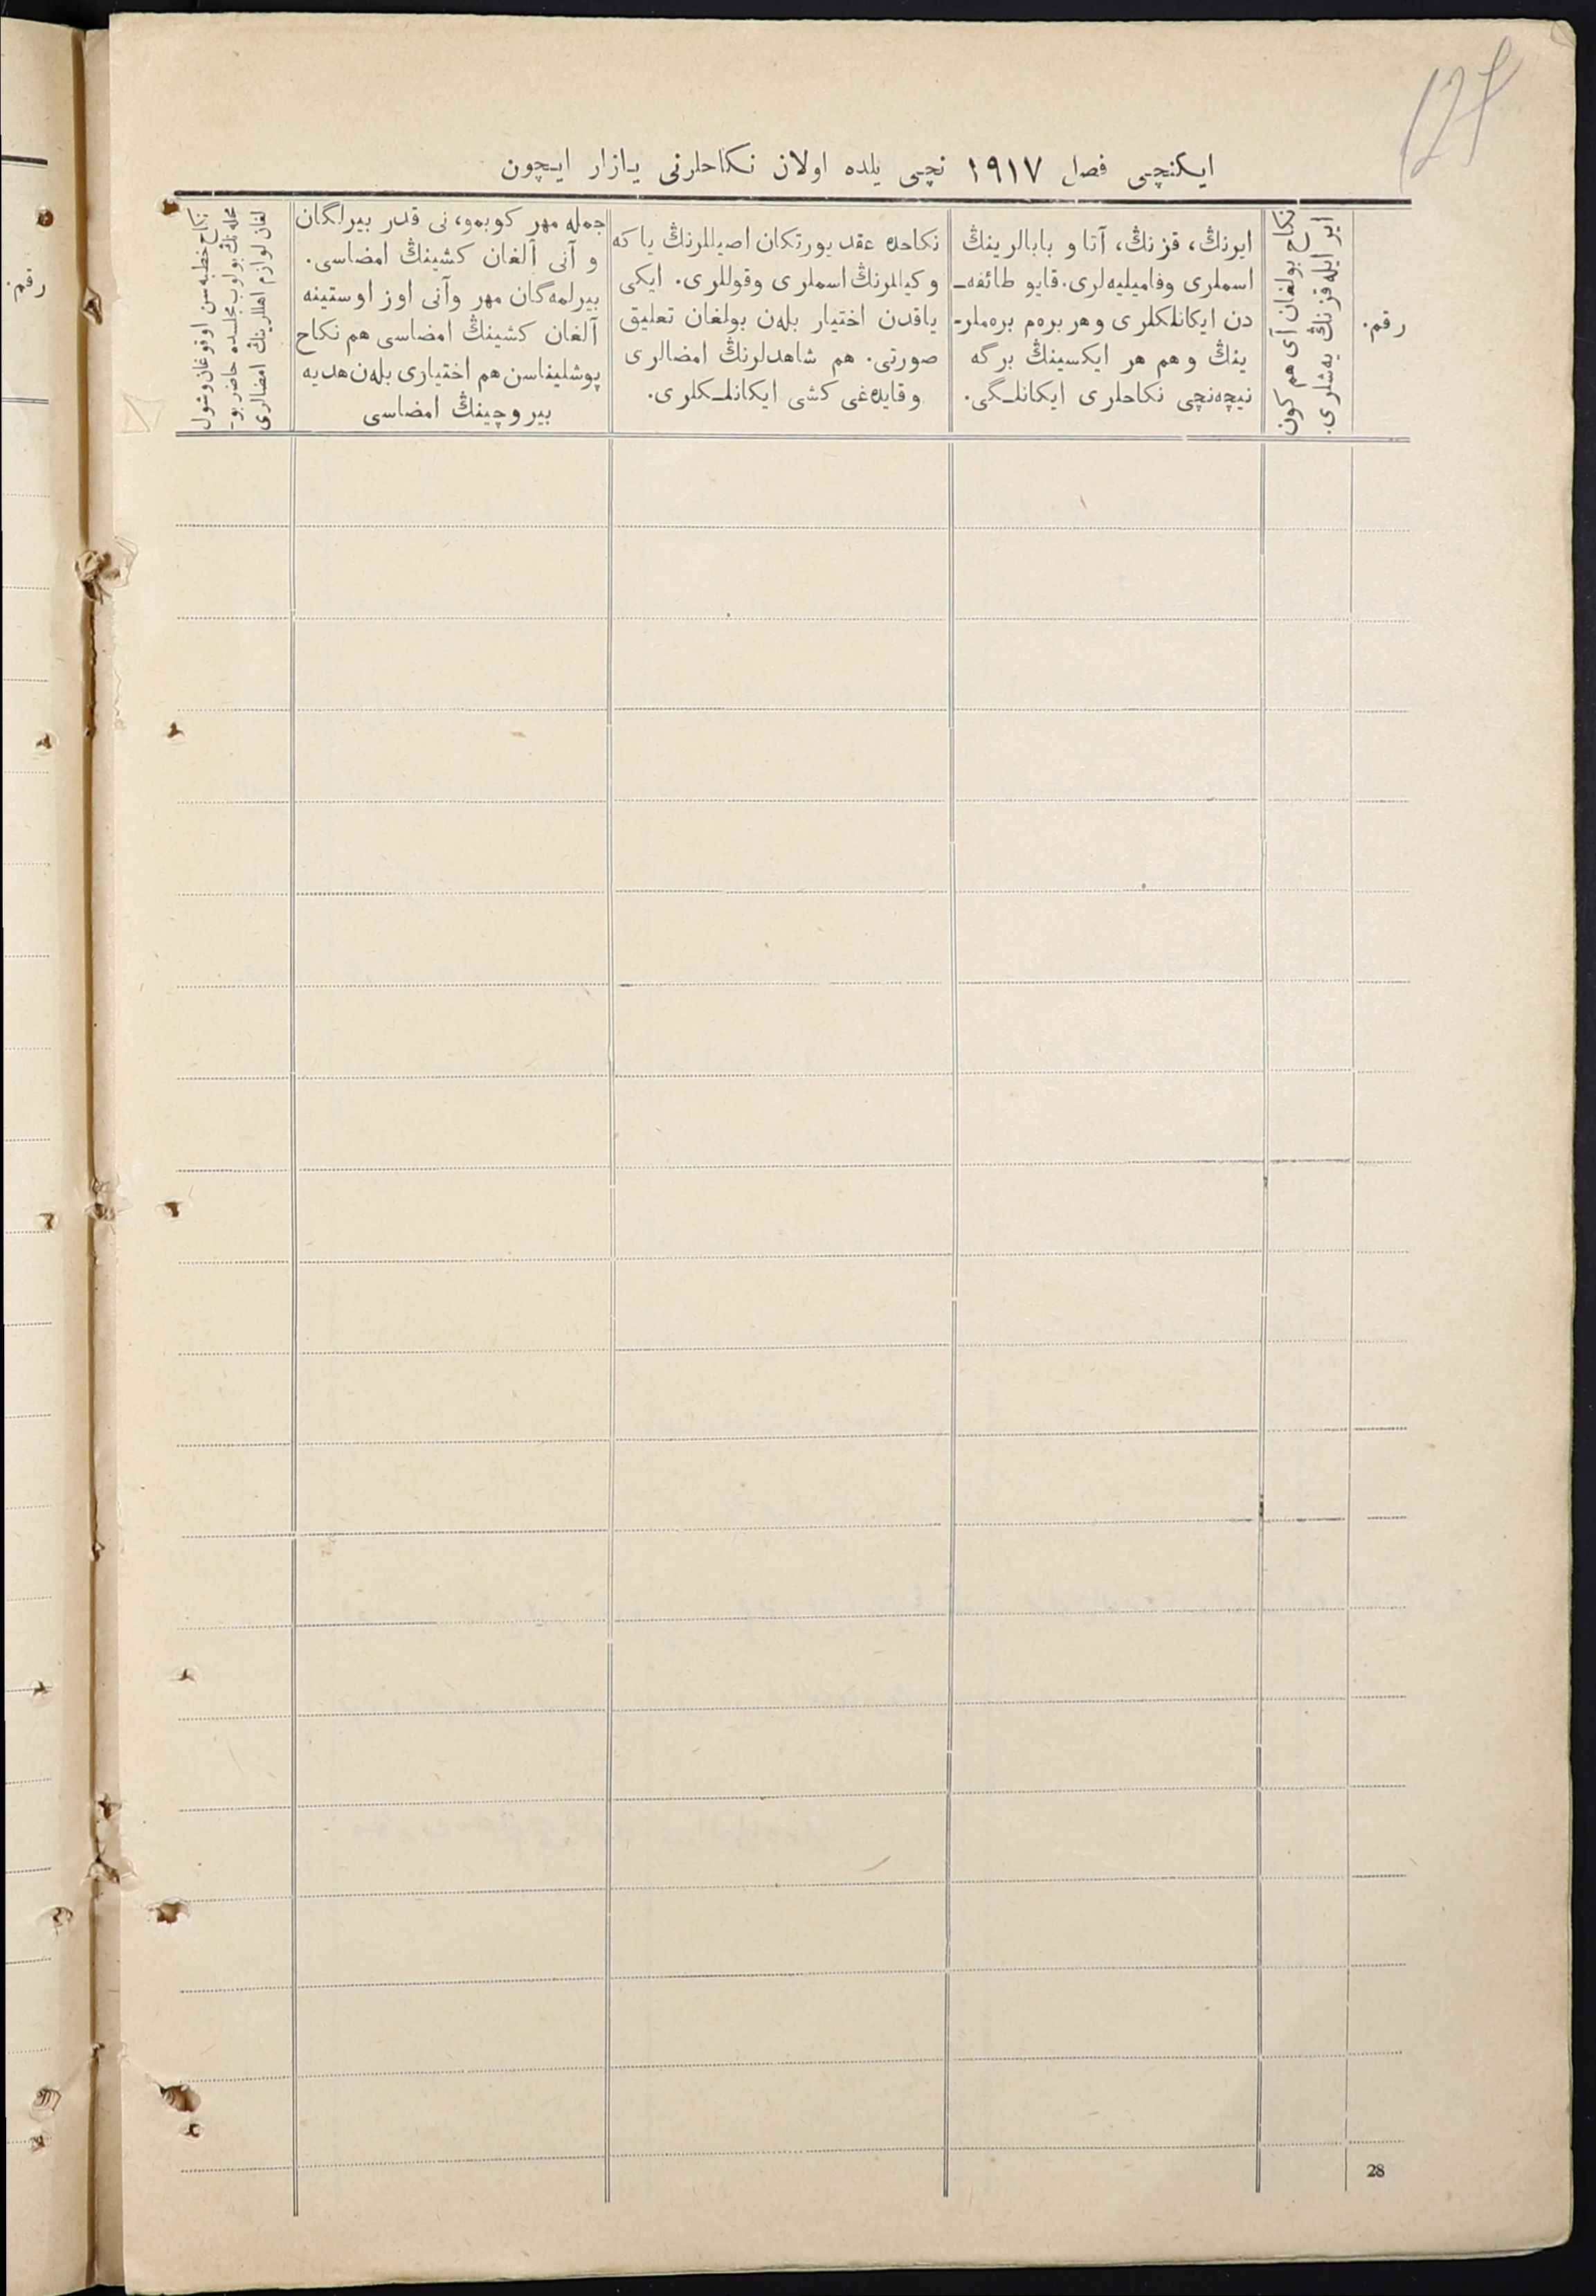 127
ایکنچی فصل ۱۹۱۷ نچی یلده اولان نکاحلرنی یازار ایچون
رقم.
ایر ایله قزنڭ یەشلری.
نکاح بولغان آی هم کون
ایرنڭ، قزنڭ، آتا و بابالرینڭ
اسملری وفامیلیەلری. قایو طائفە‌ـ
دن ایکانلکلری و هر برەم برەملر-
ینڭ و هم هر ایکسینڭ برگه
نیچەنچی نکاحلری ایکانلـگی.
نکاحده عقد یورتکان اصیللرنڭ یا که
و کیللرنڭ اسملری وقوللری. ایکی
یاقدن اختیار بلەن بولغان تعلیق
صورتی. هم شاهدلرنڭ امضالری
وقایدەغی کشی ایکانلـکلری.
جمله مهر کوبمو، نی قدر بیرلگان
و آنی آلغان کشینڭ امضاسی.
بیرلمەگان مهر وآنی اوز اوستینه
آلغان کشینڭ امضاسی هم نکاح
پوشلیناسن هم اختیاری بلەن هدیه
بیروچینڭ امضاسی
نکاح خطبه سن اوقوغان وشول
محله نڭ بولوب مجلسده حاضر بو-
لغان لوازم اهللرینڭ امضالری
رقم.
28